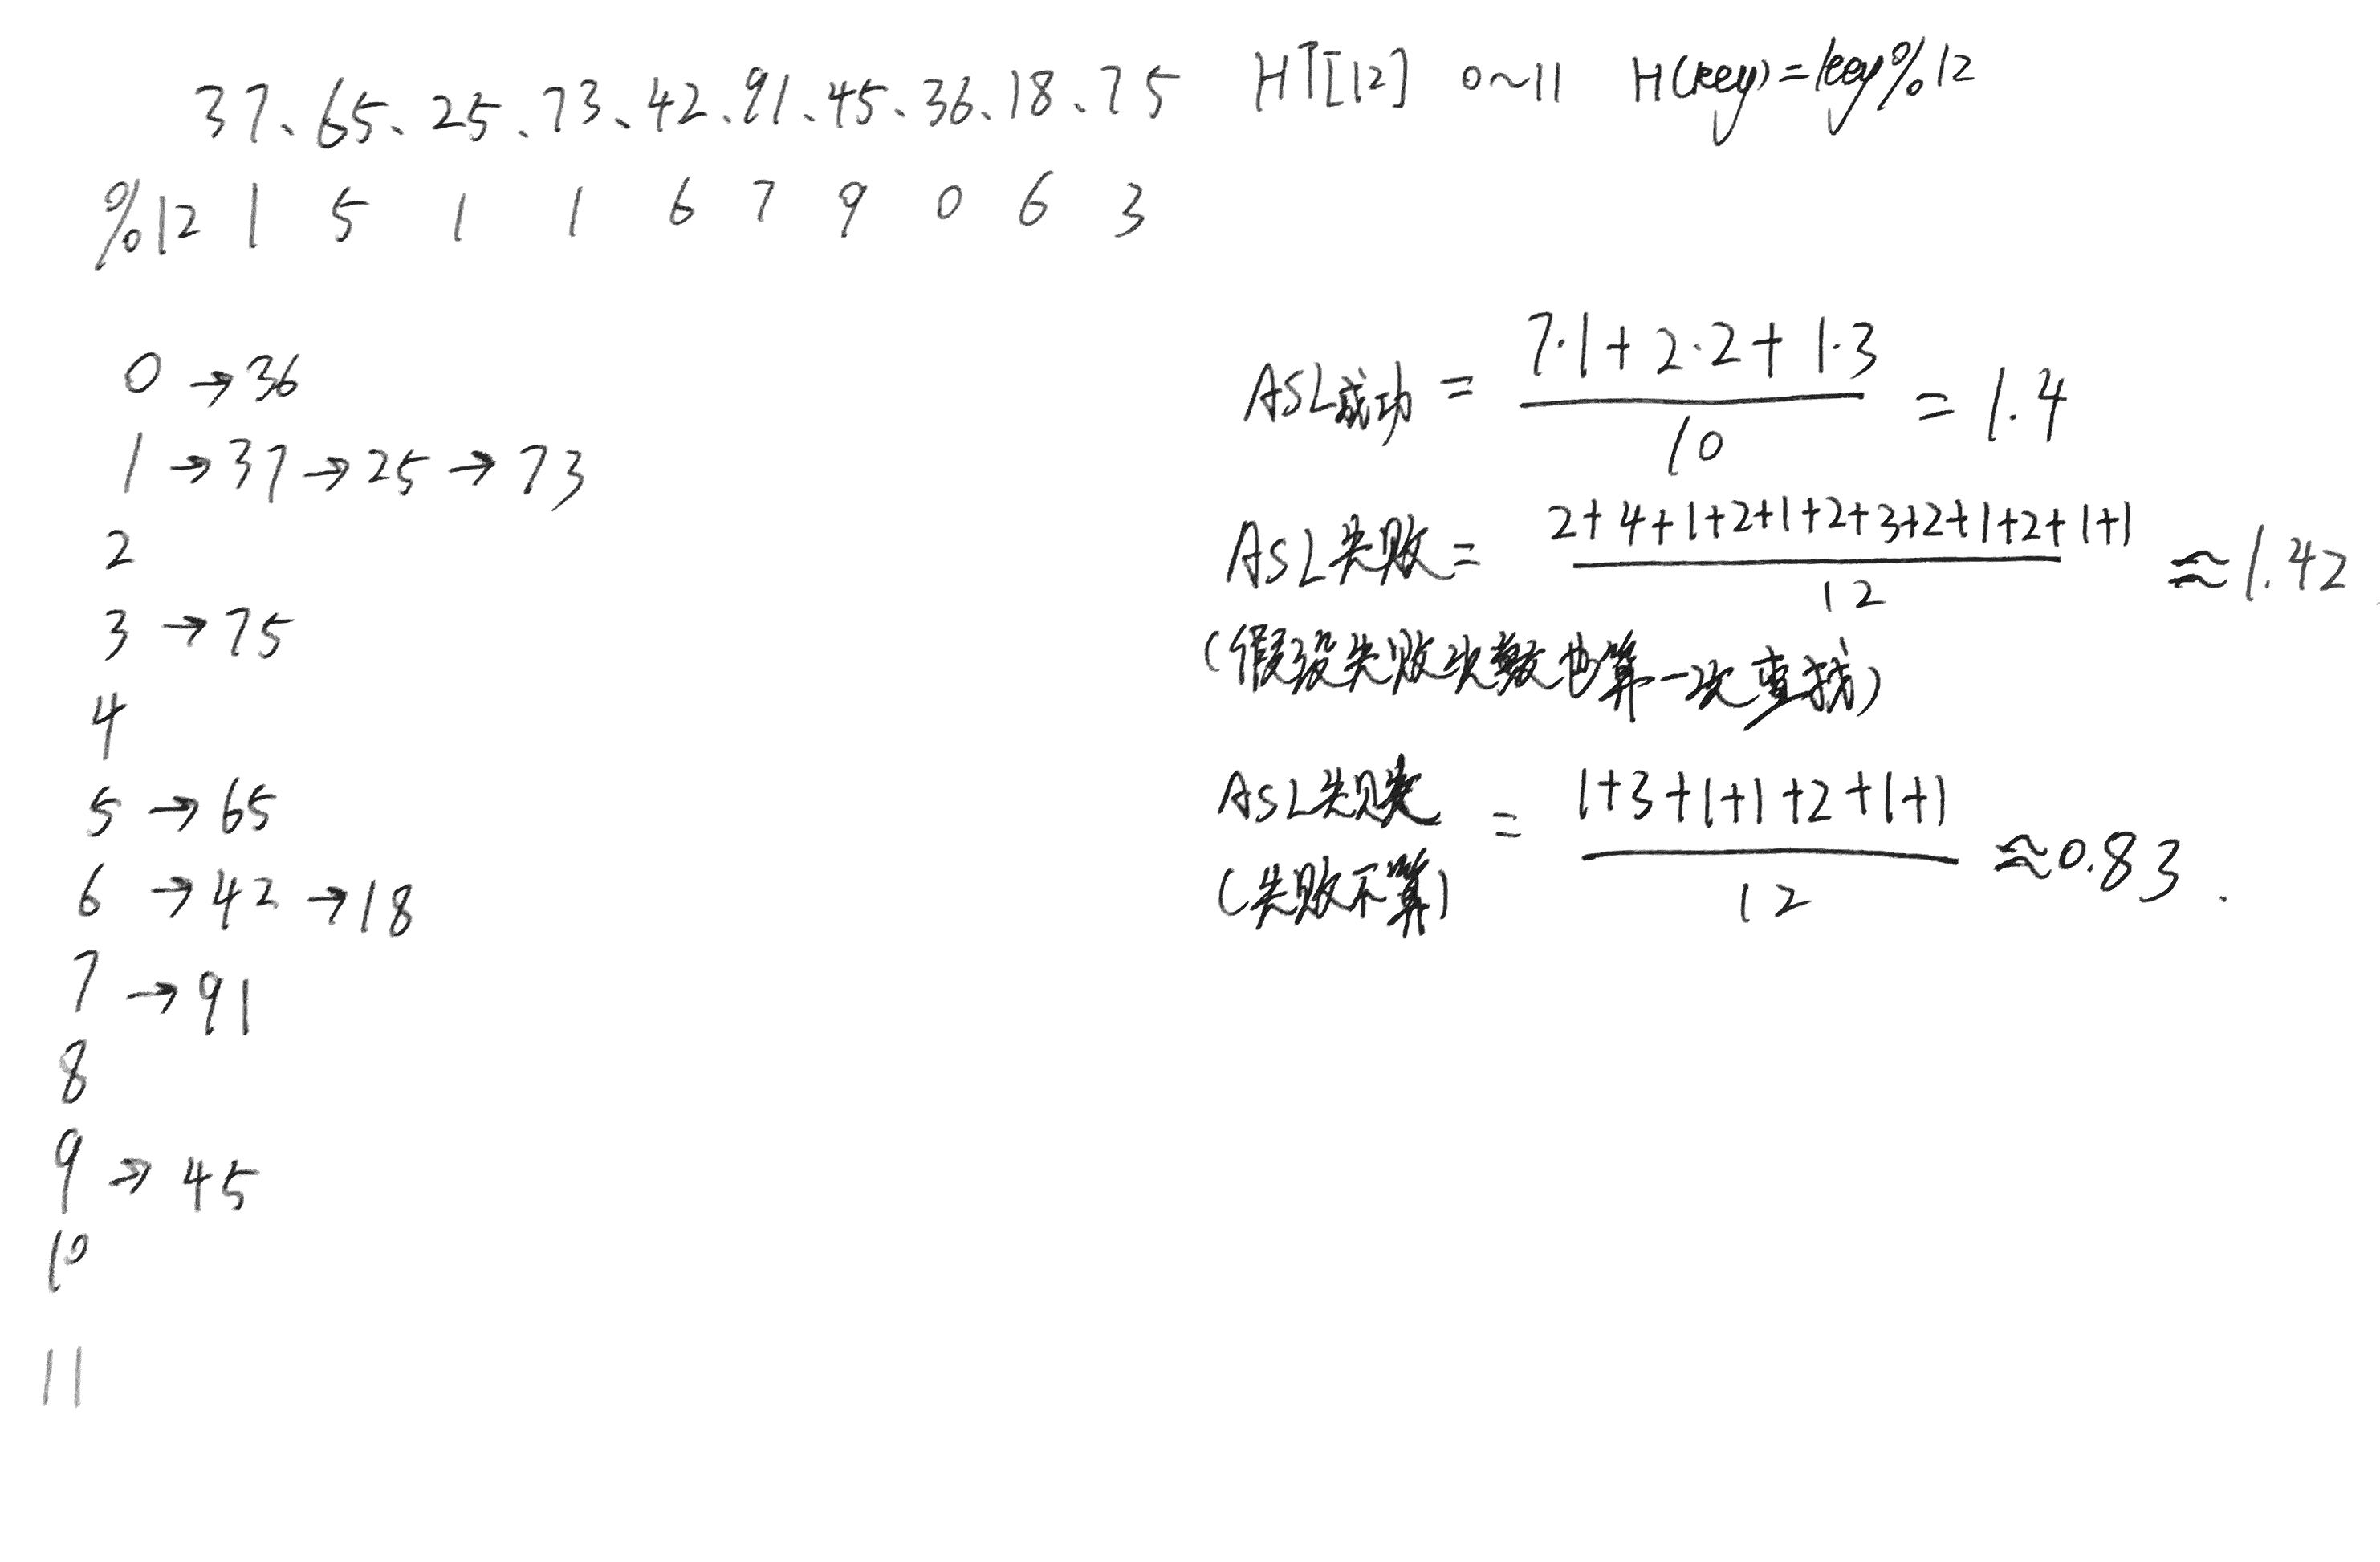 37、65、25、73、42、91、45、36、18、75 HT[12] 0~11 H(key)=key%12
%12 1 5 1 1 6 7 9 0 6 3
0→36
1→37→25→73
2
3→75
4
5→65
6→42→18
7→91
8
9→45
10
11
ASL成功 = (7·1+2·2+1·3)/10 = 1.4
ASL失败 = (2+4+1+2+1+2+3+2+1+2+1+1)/12 ≈1.42
(假设失败次数也算一次查找)
ASL失败 = (1+3+1+1+2+1+1)/12 ≈0.83.
(失败不算)